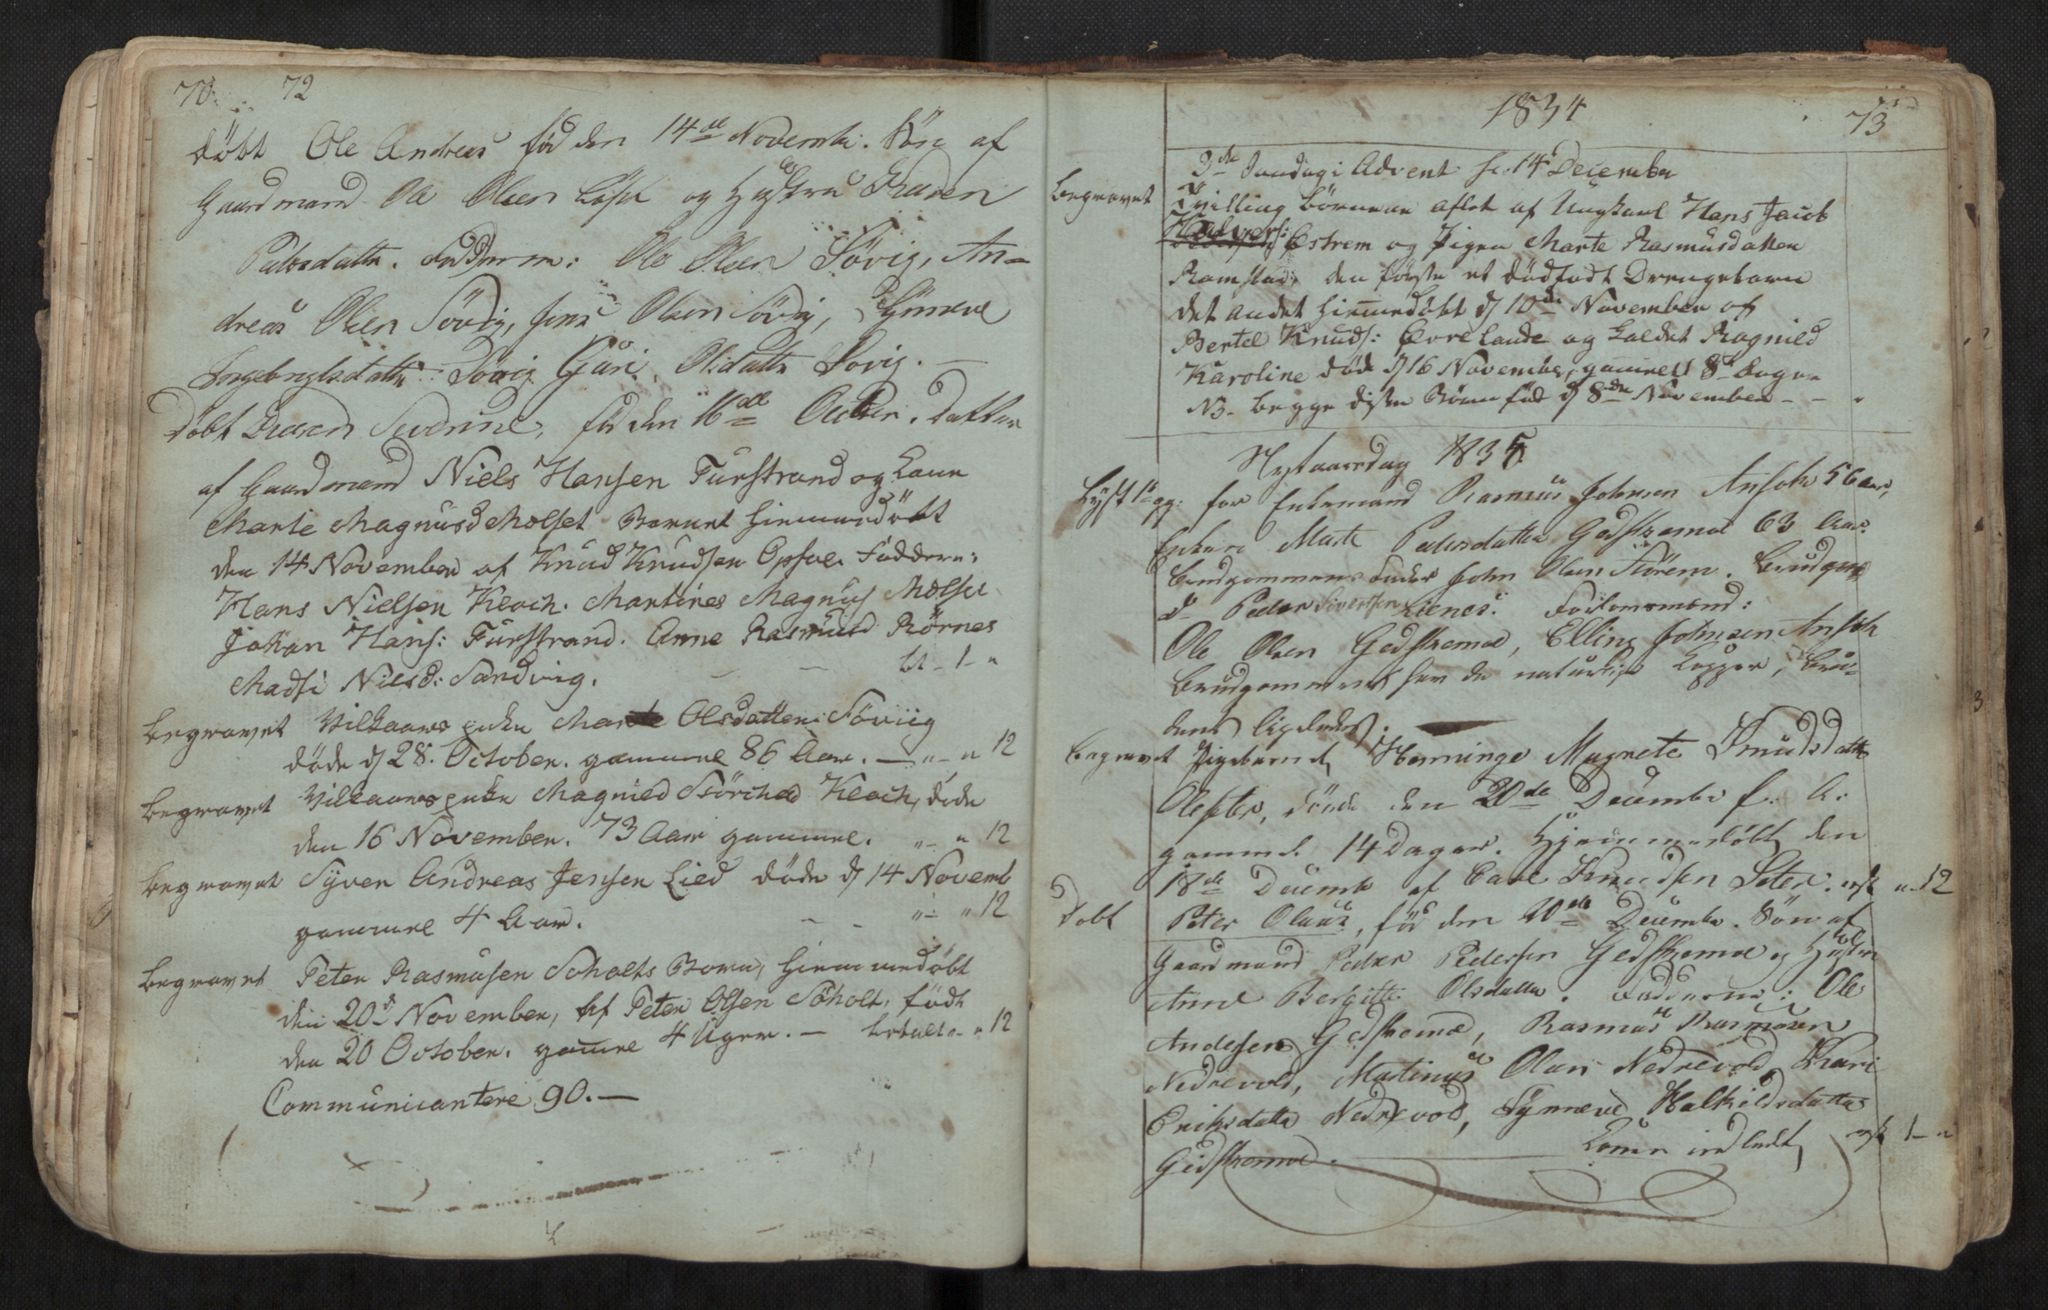 70. 72
døbt Ole Andreas fød den 14de Novembr. Søn af
Gaardmand Ole Olsen og Hustru Karen
Pedersdatter. Fadderne: Ole Olsen Søvig, An-
dreas Olsen Søvig, Jens Olsen Søvig, Synneve
Ingebrigtsdatter Søvig Guri Olsdatter Søvig. —
Døbt Karen Severine, fød den 16de October. Datter
af Gaardmand Niels Hansen Furstrand og Kone
Marte Magnusd Molset Barnet hiemmedøbt
den 14 November af Knud Knudsen Opsal. Faddere:
Hans Nielsen Kloch. Martines Magnus Molset
Johan Hans: Furstrand. Anne Rasmusd Rørnes
Madsi Nielsd: Sandvig. bt - 1 - "
begravet Vilkaars enke Marte Olsdatter Søviig
døde d 28. October. gammel 86 Aar. — " - " 12
begravet Vilkaars enke Magnild Kloch, døde
den 16 November. 73 Aar gammel. " - " 12
begravet Syver Andreas Jensen Lied døde d 14 Novemb
gammel 4 Aar. " - " 12
begravet Peter Rasmusen Soholts Barn, hiemmedøbt
den 20d November, af Peter Olsen Søholt, født
den 20 October. gamel 4 Uger. — betalt - " 12
Communicantere 90. —
1834 73
3de Søndag i Advent 14 December
begravet Tvilling børnene aflet af Ungkarl Hans Jacob
Halvors: Estrem og Pigen Marte Rasmusdatter
Ramstad, den første et dødfødt Drengebarn
det andet hiemmedøbt d 10de November af
Bertel Knuds: Overlande og kaldet Ragnild
Karoline døde d 16 November, gammel 8te Dage
NB. begge disse Børn fød d 8de November - - "
Nytaarsdag 1835
Lyst 1 gg: for Enkemand Rasmus Johnsen Ansok 56 aar,
Enken Marte Pedersdatter Gedskemoe 63 Aar.
Brudgommens Fader John Olsen . Brudens
do Peder Sivertsen . Forlovsmænd:
Ole Olsen Gedskemoe, Elling Johnsen Ansok
Brudgommen har de naturlige Kopper, Bru-
dens ligeledes.
begravet Pigebarnet Henninge Magrete Knudsdatter
, døde den 20de Decembr f. A.
gammel 14 Dager. Hjemmedøbt den
18de Decembr af Carl Knudsen Seter. " - 12
Døbt Peter Olaus, fød den 20de Decembr. Søn af
Gaardmand Peder Pedersen Gedskemoe og Hustru
Anne Bergitte Olsdatter. Fadderne: Ole
Andersen Gedskemoe, Rasmus Rasmusen
Nedrevold, Martinus Olsen Nedrevold, Kari
Eriksdatter Nedrevold, Synneve Halkildsdatter
Gedskemoe. Konen indledt, 1 - "